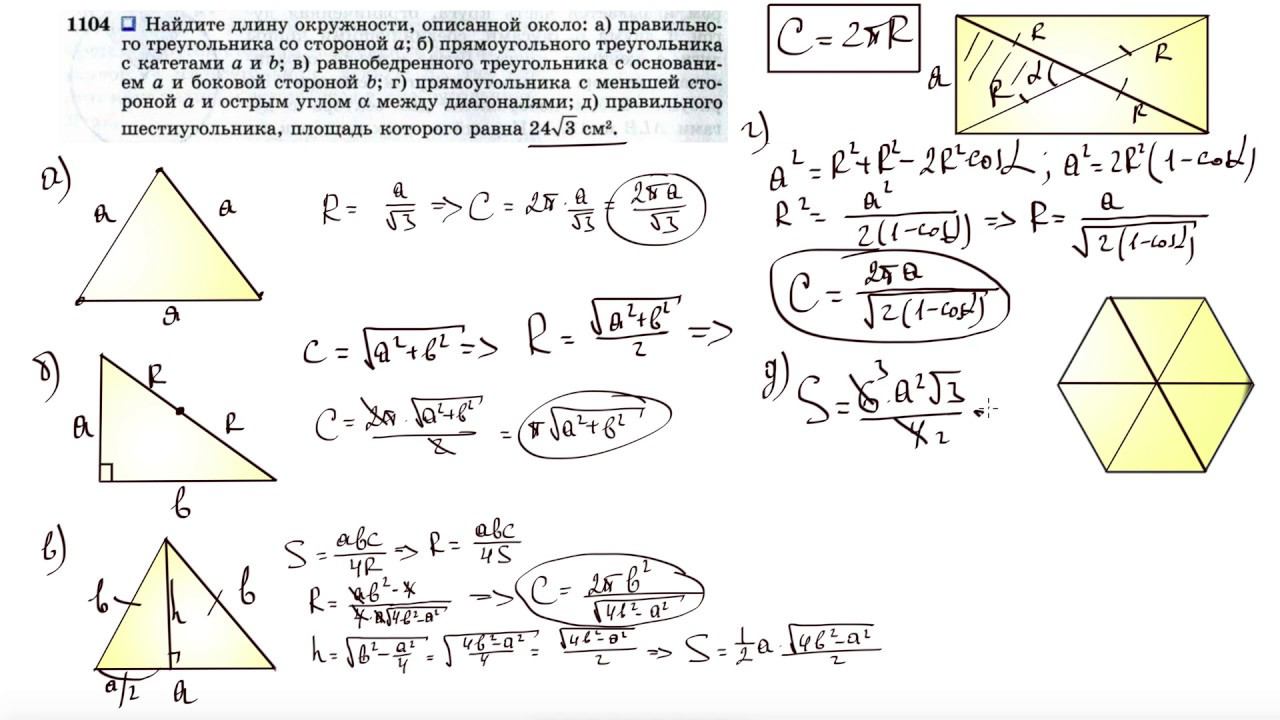 1104 Найдите длину окружности, описанной около: а) правильно-
го треугольника со стороной a; б) прямоугольного треугольника
с катетами a и b; в) равнобедренного треугольника с основани-
ем a и боковой стороной b; г) прямоугольника с меньшей сто-
роной a и острым углом α между диагоналями; д) правильного
шестиугольника, площадь которого равна 24√3 см².
C = 2πR
a R R α R R
а)
a a
a
R = a/√3 => C = 2π · a/√3 = 2πa/√3
б)
R
a R
b
c = √(a²+b²) => R = √(a²+b²)/2 =>
C = 2π · √(a²+b²)/2 = π√(a²+b²)
в)
b h b
a/2 a
S = abc/4R => R = abc/4S
R = ab²·4/4·a√(4b²-a²) => C = 2πb²/√(4b²-a²)
h = √(b² - a²/4) = √((4b²-a²)/4) = √(4b²-a²)/2 => S = 1/2 a · √(4b²-a²)/2
г)
a² = R² + R² - 2R² cosα ; a² = 2R²(1-cosα)
R² = a²/2(1-cosα) => R = a/√(2(1-cosα))
C = 2πa/√(2(1-cosα))
д)
S = 6³ · a²√3/4 2 =